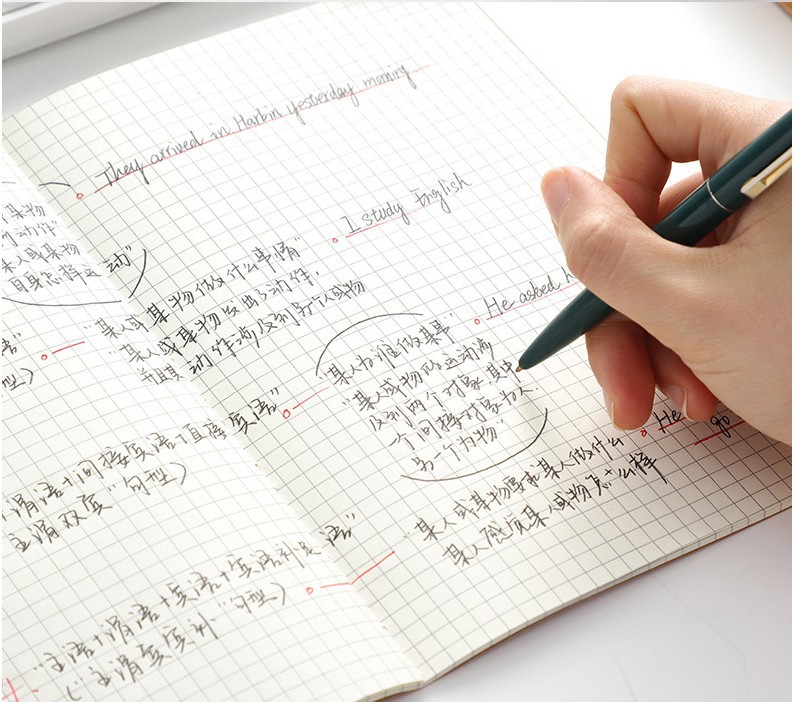 They arrived in Harbin yesterday morning
I study English
He asked h
He
go
某物
动作”
某人或某物
自身怎样运动”
“某人或某物做什么事情”
“某人或某物发出的动作,
并且其动作涉及到另个人或物
“某人为谁做某事”
“某人或物的运动涉
及到两个对象,其中
一个间接对象为人.
另一个为物”
宾语”
型)
谓语+间接宾语+直接宾语”
主谓双宾”句型)
“某人或某物要求某人做什么
某人感觉某人或物怎么样
“主语+谓语+宾语+宾语补足语”
(“主谓宾宾补”句型)